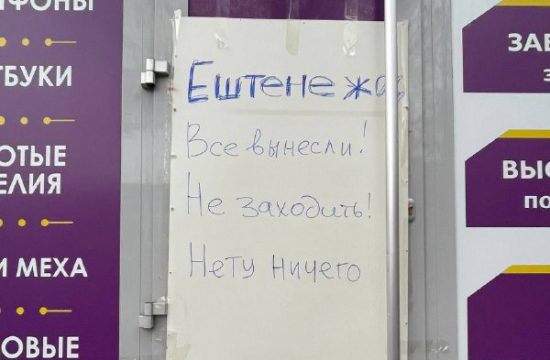 ЗАВ
ТБУКИ
Ештене жоқ
З
Все вынесли!
ОТЫЕ
ЕЛИЯ
ВЫС
по
Не заходить!
И МЕХА
Нету ничего
ОВЫЕ